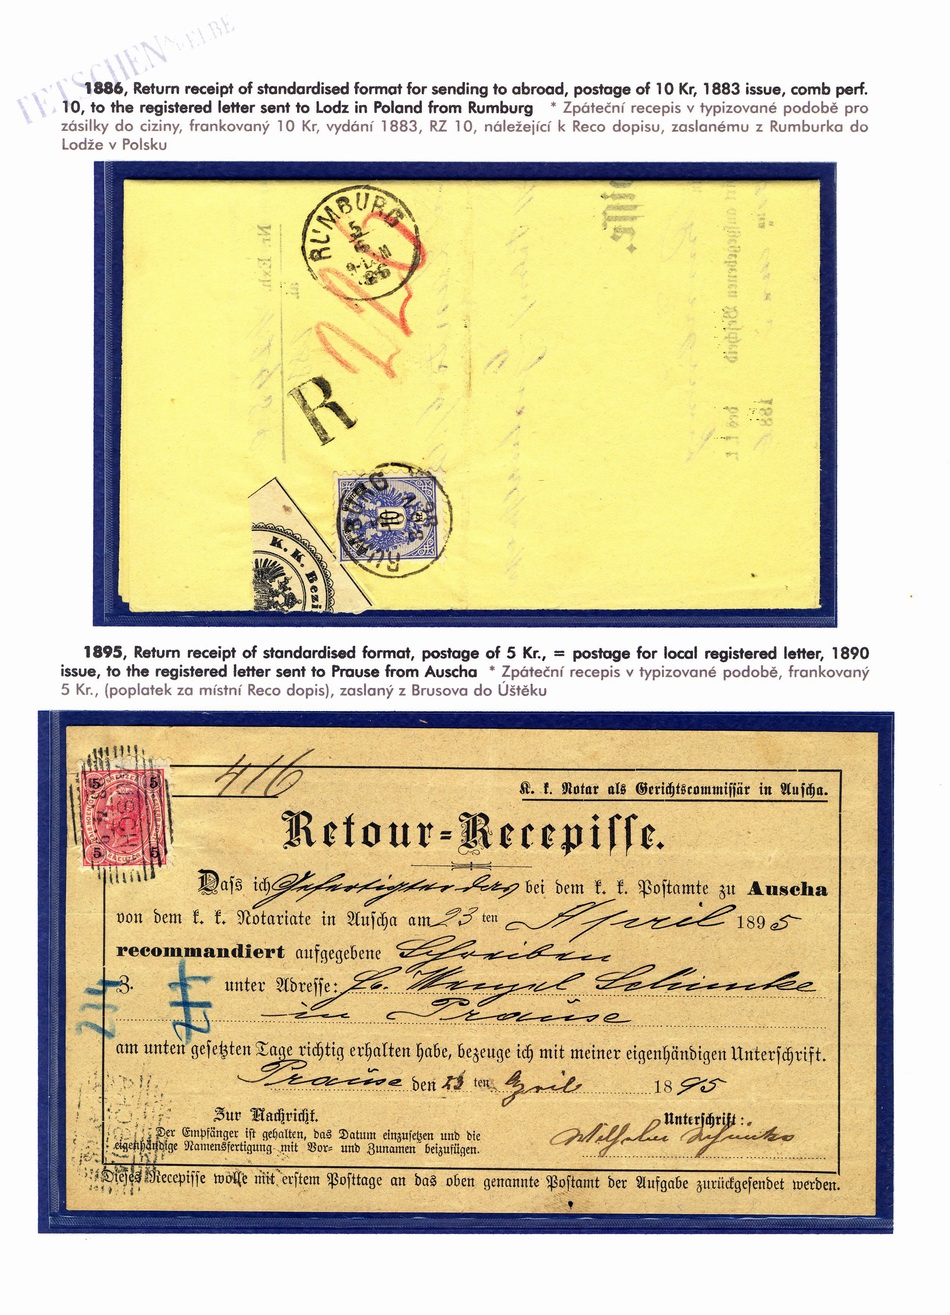 TETSCHEN A/ELBE
1886, Return receipt of standardised format for sending to abroad, postage of 10 Kr, 1883 issue, comb perf.
10, to the registered letter sent to Lodz in Poland from Rumburg * Zpáteční recepis v typizované podobě pro
zásilky do ciziny, frankovaný 10 Kr, vydání 1883, RZ 10, náležející k Reco dopisu, zaslanému z Rumburka do
Lodže v Polsku
RUMBURG
R
10
RUMBURG
K. K. Bezi
1895, Return receipt of standardised format, postage of 5 Kr., = postage for local registered letter, 1890
issue, to the registered letter sent to Prause from Auscha * Zpáteční recepis v typizované podobě, frankovaný
5 Kr., (poplatek za místní Reco dopis), zaslaný z Brusova do Úštěku
416
5 5
5 5
K. k. Notar als Gerichtscommissär in Auscha.
Retour-Recepisse.
Dass ich Gefertigter das bei dem k. k. Postamte zu Auscha
von dem k. k. Notariate in Auscha am 23 ten April 1895
recommandiert aufgegebene Schreiben
3. unter Adresse: Hr. Wenzel Schimke
in Prause
am unten gesetzten Tage richtig erhalten habe, bezeuge ich mit meiner eigenhändigen Unterschrift.
Prause den 23 ten April 1895
Zur Nachricht.
Unterschrift:
Der Empfänger ist gehalten, das Datum einzusetzen und die
eigenhändige Namensfertigung mit Vor- und Zunamen beizufügen.
Dieses Recepisse wolle mit erstem Posttage an das oben genannte Postamt der Aufgabe zurückgesendet werden.